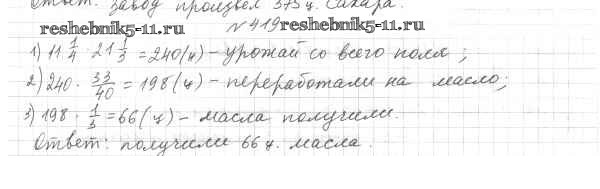 Ответ: завод произвел 375 ц. сахара.
reshebnik5-11.ru № 419 reshebnik5-11.ru
1) 11 1/4 · 21 1/3 = 240 (ц) - урожай со всего поля;
2) 240 · 33/40 = 198 (ц) - переработали на масло;
3) 198 · 1/3 = 66 (ц) - масла получили.
Ответ: получили 66 ц. масла.